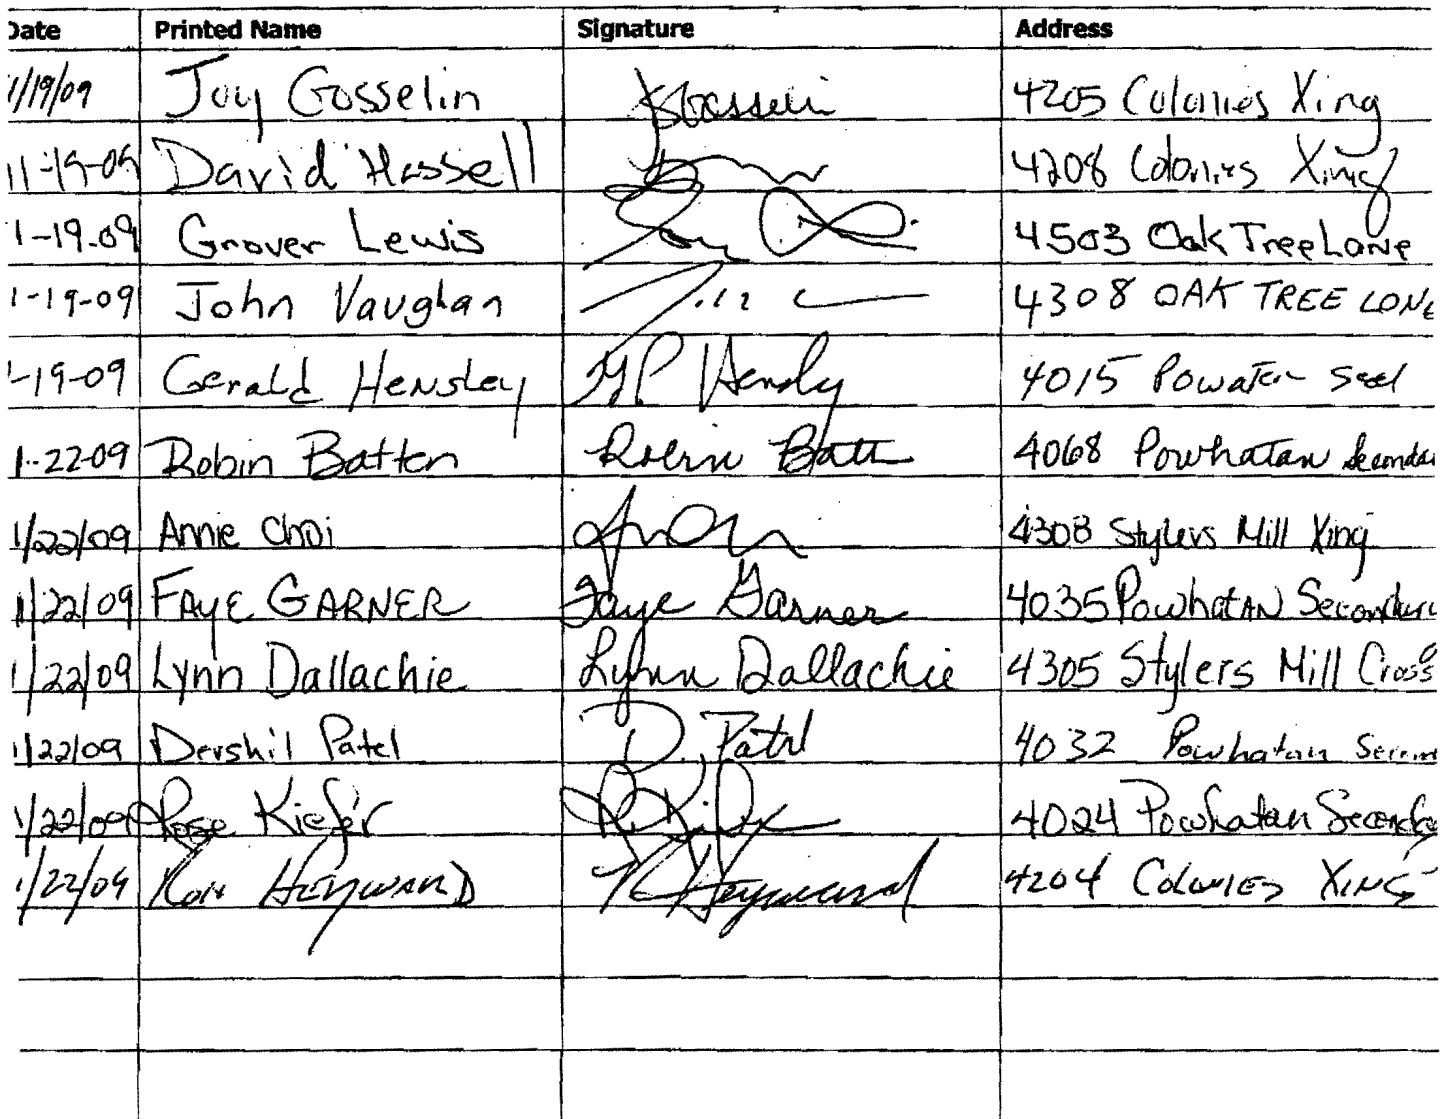 Date Printed Name Signature Address
1/19/09 Joy Gosselin JGosselin 4205 Colonies Xing
11-19-09 David Hassell 4208 Colonies Xing
1-19-09 Grover Lewis 4503 Oak Tree Lane
1-19-09 John Vaughan 4308 OAK TREE LANE
1-19-09 Gerald Hensley 4015 Powaten
1-22-09 Robin Batten Robin Batt 4068 Powhatan Seconda
1/22/09 Annie Choi 4308 Stylers Mill Xing
1/22/09 FAYE GARNER Faye Garner 4035 Powhatan Secondary
1/22/09 Lynn Dallachie Lynn Dallachie 4305 Stylers Mill Cross
1/22/09 Dershil Patel D. Patel 4032 Powhatan
1/22/09 Rose Kiefer R. Kiefer 4024 Powhatan Seconda
1/22/09 Ron HEYWARD R Heyward 4204 COLONIES XING